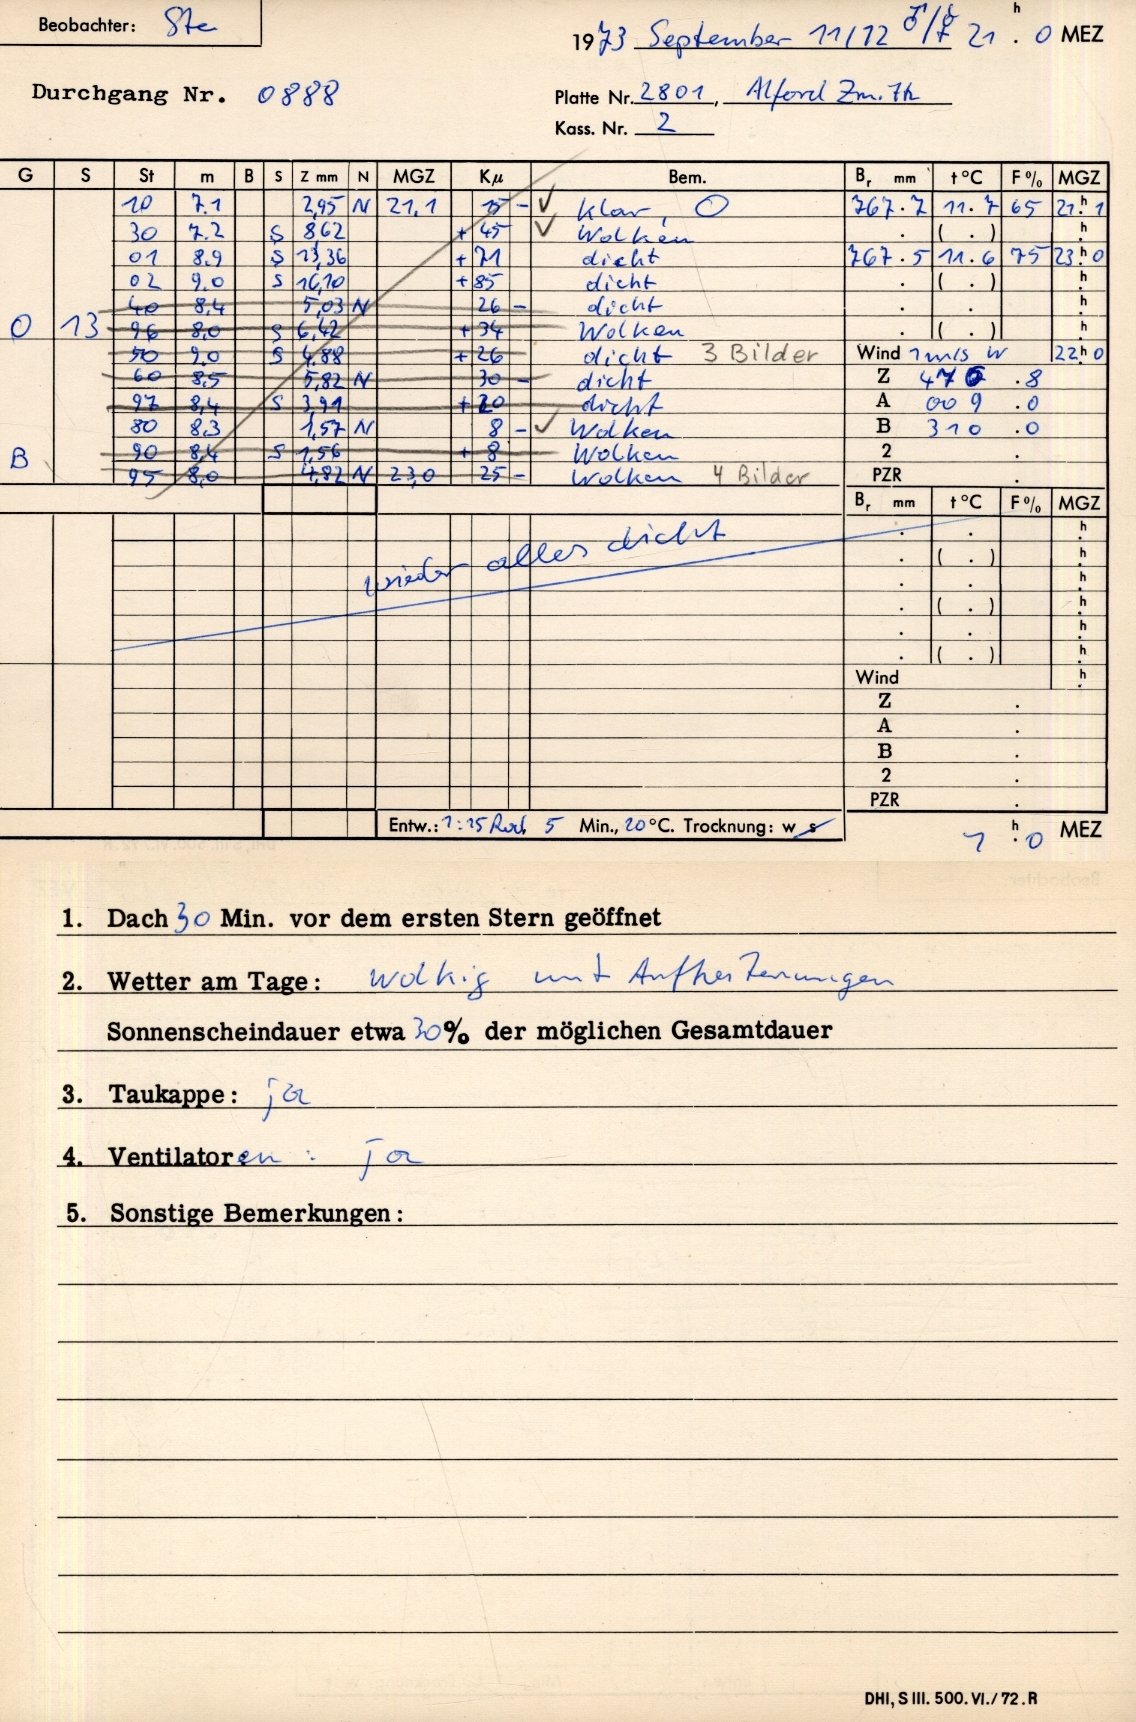 Beobachter: Ste
1973 September 11/12 ♂/☿ 21 h . 0 MEZ
Durchgang Nr. 0888
Platte Nr. 2801,
Kass. Nr. 2
G S St m B S Z mm N MGZ Kμ Bem. Br mm t°C F% MGZ
10 7.1 2,95 N 21,1 15 – ✓ klar, O 767.7 11.7 65 21 h 1
30 7.2 S 8,62 + 45 ✓ Wolken . ( . ) h
01 8.9 S 13,36 + 71 dicht 767.5 11.6 75 23 h 0
02 9.0 S 16,10 + 85 dicht . ( . ) h
40 8,4 5,03 N 26 – dicht . . h
O 13 96 8,0 S 6,42 + 34 Wolken . ( . ) h
50 9,0 S 4,88 + 26 dicht 3 Bilder Wind 1 m/s W 22 h 0
60 8,5 5,82 N 30 – dicht Z 476 .8
97 8,4 S 3,91 + 20 dicht A 009 .0
80 8.3 1,57 N 8 – ✓ Wolken B 310 .0
B 90 8,4 S 1,56 + 8 Wolken 2 .
95 8,0 4,82 N 23,0 25 – Wolken 4 Bilder PZR .
Br mm t°C F% MGZ
wieder alles dicht
. . h
. ( . ) h
. . h
. ( . ) h
. . h
. ( . ) h
Wind h
Z .
A .
B .
2 .
PZR .
Entw.: 1:25 Rod. 5 Min., 20°C. Trocknung: w s
1 h . 0 MEZ
1. Dach 30 Min. vor dem ersten Stern geöffnet
2. Wetter am Tage: wolkig mit Aufheiterungen
Sonnenscheindauer etwa 30% der möglichen Gesamtdauer
3. Taukappe: ja
4. Ventilatoren : ja
5. Sonstige Bemerkungen:
DHI, S III. 500. VI./72.R